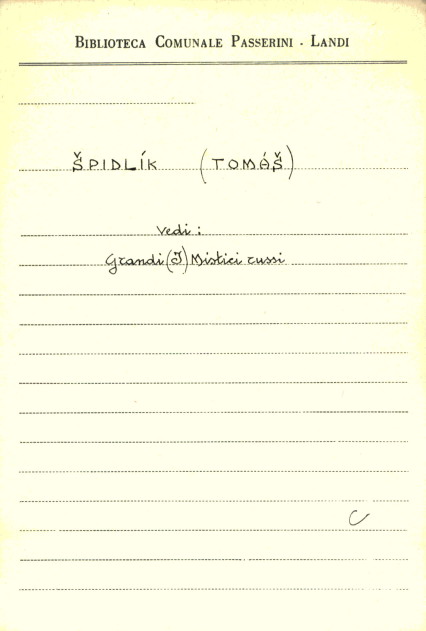 BIBLIOTECA COMUNALE PASSERINI - LANDI
ŠPIDLÍK (TOMÁŠ)
Vedi:
Grandi (I) Mistici russi
C